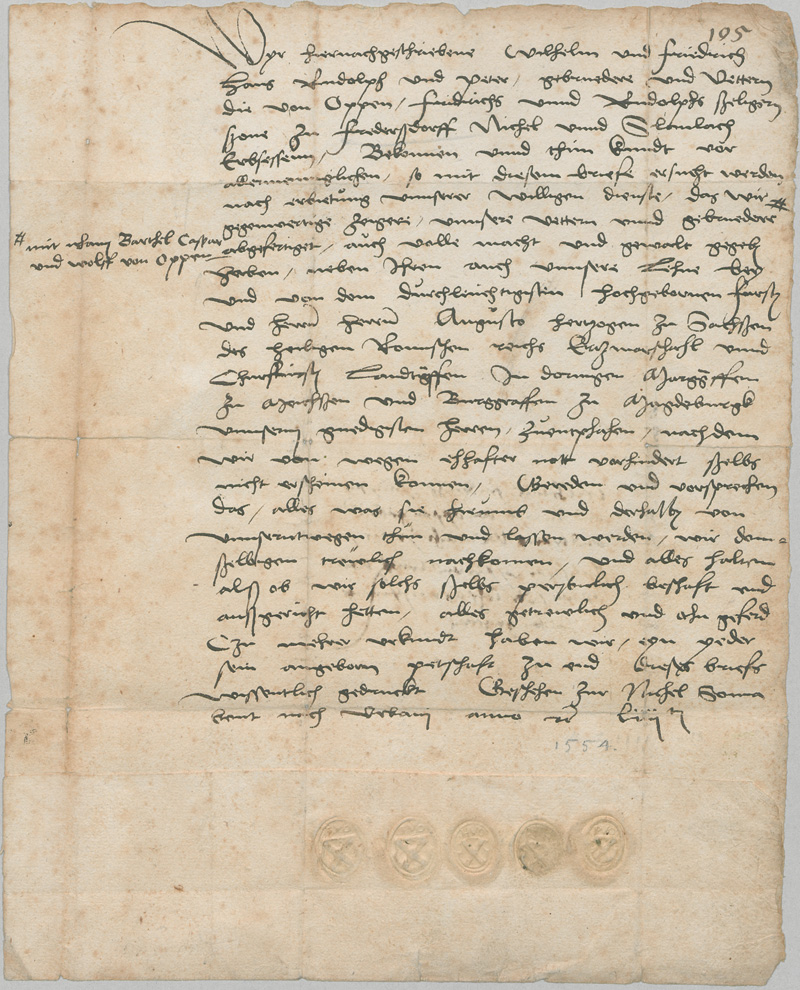 195
Wyr hiernachgeschriebene Wilhelm und Friedrich
Hans Rudolph und Peter, gebruedere und Vettern
die von Oppen, Fridrichs unnd Rudolphs seligen
sone zu Fredersdorff Nichel unnd Slamlach
Erbsessenn, Bekennen unnd thun kundt vor
allermenniglichen, so mit diesem briefe ersucht werden
nach erbietung unnserer willigen dienste, das wir #
gegenwertige Zeigere, unnsere Vettern unnd gebruedere
# mit nham Barthel Caspar
und wolff von Oppen
abgefertiget, auch volle macht und gewalt gegeben
haben, neben Ihren auch unnsere Lehne bey
und von dem durchleuchtigisten hochgebornen fursten
und herrn herrn Augusto hertzogen zu Sachssen
des heiligen Romischen reichs Ertzmarschalh unnd
Churfursten Landtgraffen In doringen Marggraffen
zu Meichssen und Burggraffen zu Magdeburgk
unnserm gnedigsten herren, zuentphahen, nachdem
wir von wegen ehhafter nott vorhindert selbs
nicht erscheinen konnen, Gereden und vorsprechen
das, alles was sie hirumb und derhalb von
unnserntwegen thun und lassen werden, wir dem-
selbigen treulich nachkomen, und alles halten
als ob wir solchs selbs personlich beschaft und
aussgericht hetten, alles getreulich und ohn geferd
Czu mehrer urkundt haben wir, eyn yeder
sein angeborn petschaft zu end dieses briefs
wissentlich gedruckt Geschehen zur Nichel Sonna
bent nach Urbani anno liiii
1554.